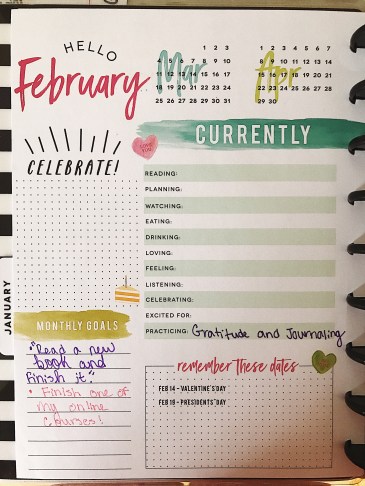 HELLO
February
Mar
1 2 3
4 5 6 7 8 9 10
11 12 13 14 15 16 17
18 19 20 21 22 23 24
25 26 27 28 29 30 31
Apr
1 2 3 4 5 6 7
8 9 10 11 12 13 14
15 16 17 18 19 20 21
22 23 24 25 26 27 28
29 30
CELEBRATE!
CURRENTLY
READING:
PLANNING:
WATCHING:
EATING:
DRINKING:
LOVING:
FEELING:
LISTENING:
CELEBRATING:
EXCITED FOR:
PRACTICING: Gratitude and Journaling
JANUARY
MONTHLY GOALS
"Read a new
book and
finish it."
• Finish one of
my online
courses!
remember these dates
FEB 14 - VALENTINE'S DAY
FEB 19 - PRESIDENTS' DAY